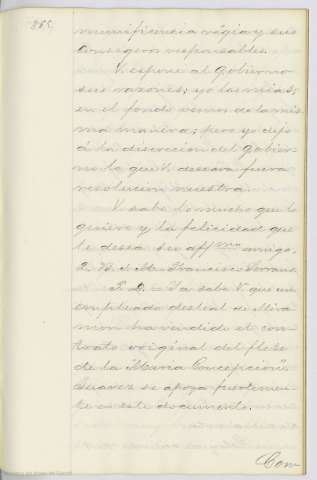 munificencia régia y sus
Consegeros responsables.
V. espone al Gobierno
sus razones; yo las mias;
en el fondo vemos de la mis
ma manera; pero yo dejo
á la discrecion del gobier
no lo que V. deseara fuera
resolucion nuestra.
V. sabe lo mucho que le
quiere y la felicidad que
le desea su aff.mo amigo,
Q. B. S. M. Francisco Serrano
P. D. = Ya sabe V. que un
empleado desleal de Mira
mon ha vendido el con
trato original del flete
de la "Maria Concepcion";
Juarez se apoya fuertemen
te en este documento.
Com